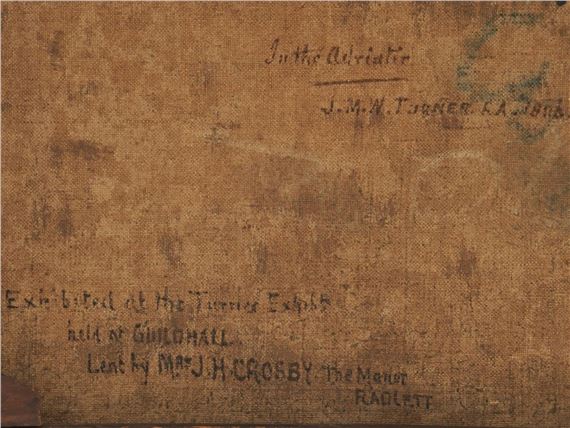 In the Adriatic
J. M. W. TURNER R.A.
Exhibited at the Turner Exhibt
held at GUILDHALL.
Lent by Mrs J. H. CROSBY The Manor
RADLETT